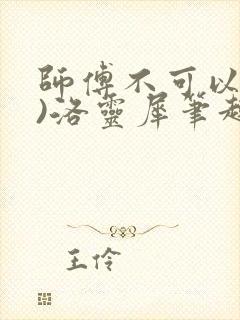 師傅不可以
)洛靈犀筆趣
王伶